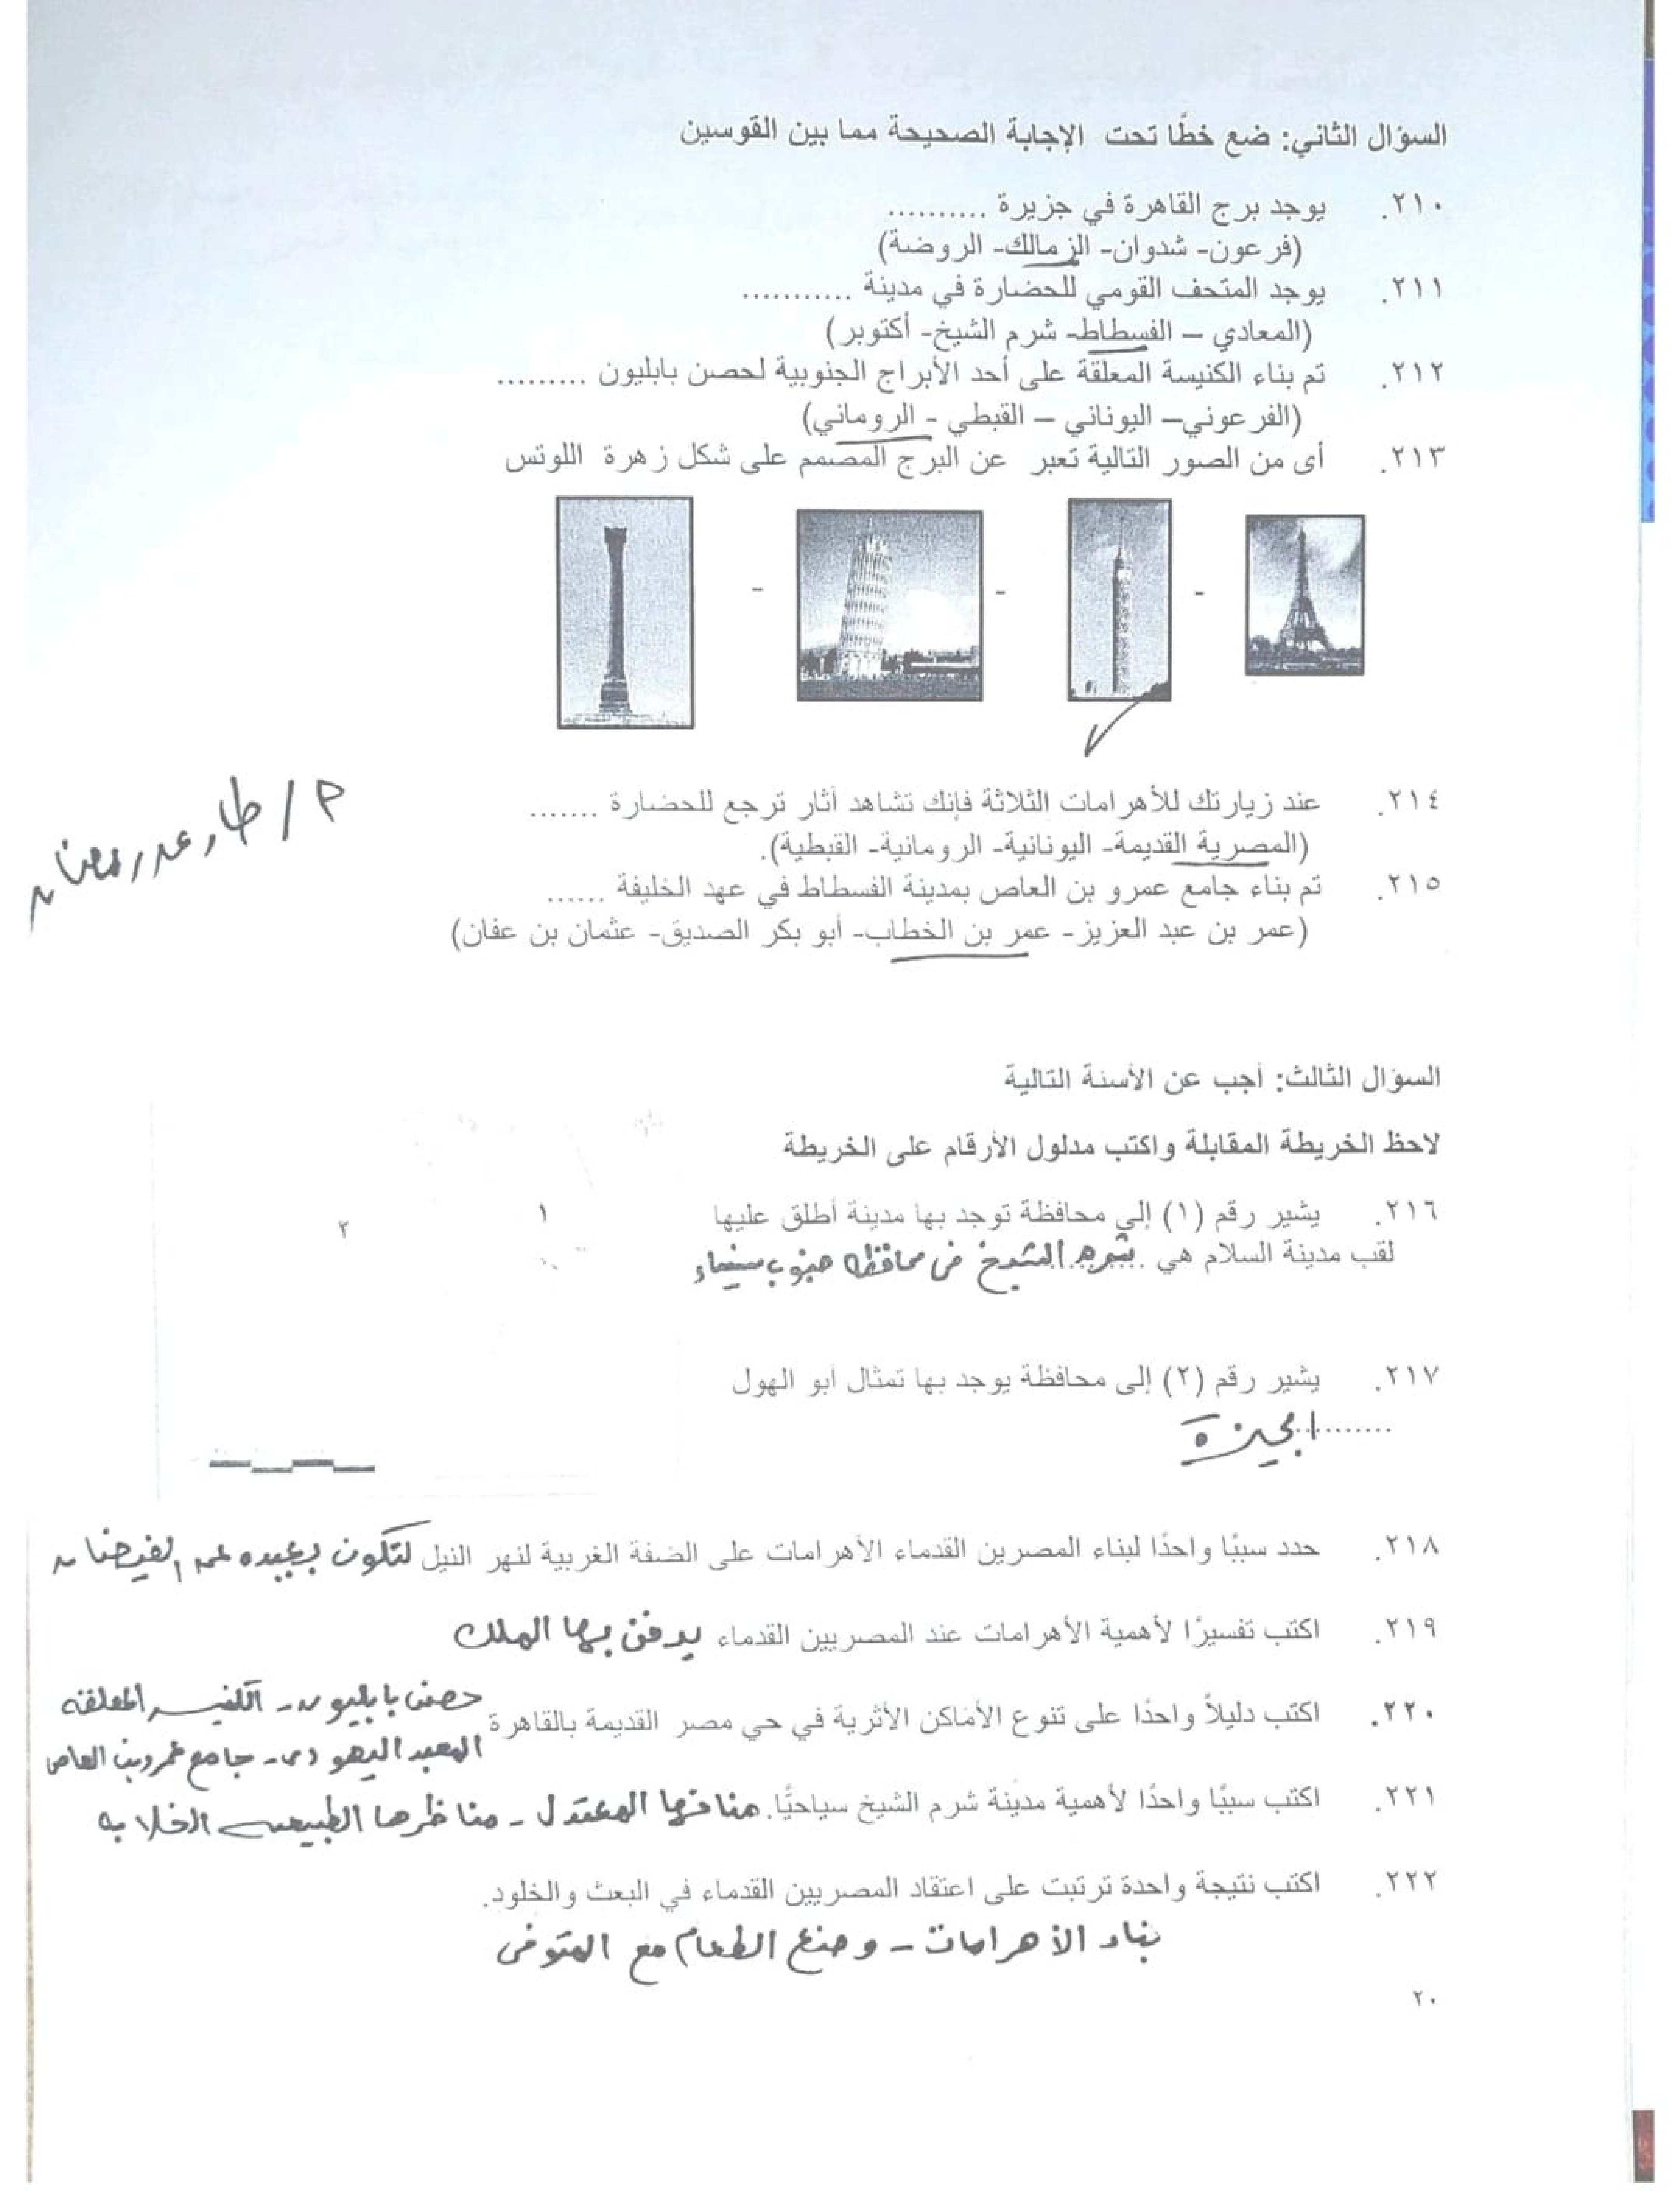 السؤال الثاني: ضع خطًا تحت الإجابة الصحيحة مما بين القوسين
٢١٠. يوجد برج القاهرة في جزيرة ..........
(فرعون- شدوان- الزمالك- الروضة)
٢١١. يوجد المتحف القومي للحضارة في مدينة ...........
(المعادي – الفسطاط- شرم الشيخ- أكتوبر)
٢١٢. تم بناء الكنيسة المعلقة على أحد الأبراج الجنوبية لحصن بابليون .........
(الفرعوني– اليوناني – القبطي - الروماني)
٢١٣. أى من الصور التالية تعبر عن البرج المصمم على شكل زهرة اللوتس
- - -
٢١٤. عند زيارتك للأهرامات الثلاثة فإنك تشاهد أثار ترجع للحضارة .......
(المصرية القديمة- اليونانية- الرومانية- القبطية).
٢١٥. تم بناء جامع عمرو بن العاص بمدينة الفسطاط في عهد الخليفة ......
(عمر بن عبد العزيز- عمر بن الخطاب- أبو بكر الصديق- عثمان بن عفان)
السؤال الثالث: أجب عن الأسئلة التالية
لاحظ الخريطة المقابلة واكتب مدلول الأرقام على الخريطة
٢١٦. يشير رقم (١) إلى محافظة توجد بها مدينة أطلق عليها
١ ٢
لقب مدينة السلام هي ........ شرم الشيخ فى محافظة جنوب سيناء
٢١٧. يشير رقم (٢) إلى محافظة يوجد بها تمثال أبو الهول
..........الجيزة
٢١٨. حدد سببًا واحدًا لبناء المصرين القدماء الأهرامات على الضفة الغربية لنهر النيل لتكون بعيده عن الفيضان
٢١٩. اكتب تفسيرًا لأهمية الأهرامات عند المصريين القدماء يدفن بها الملك
٢٢٠. اكتب دليلاً واحدًا على تنوع الأماكن الأثرية في حي مصر القديمة بالقاهرة حصن بابليون - الكنيسة المعلقه
المعبد اليهودى - جامع عمرو بن العاص
٢٢١. اكتب سببًا واحدًا لأهمية مدينة شرم الشيخ سياحيًا. مناخها المعتدل - مناظرها الطبيعيه الخلابه
٢٢٢. اكتب نتيجة واحدة ترتبت على اعتقاد المصريين القدماء في البعث والخلود.
بناء الأهرامات - وضع الطعام مع المتوفى
٢٠